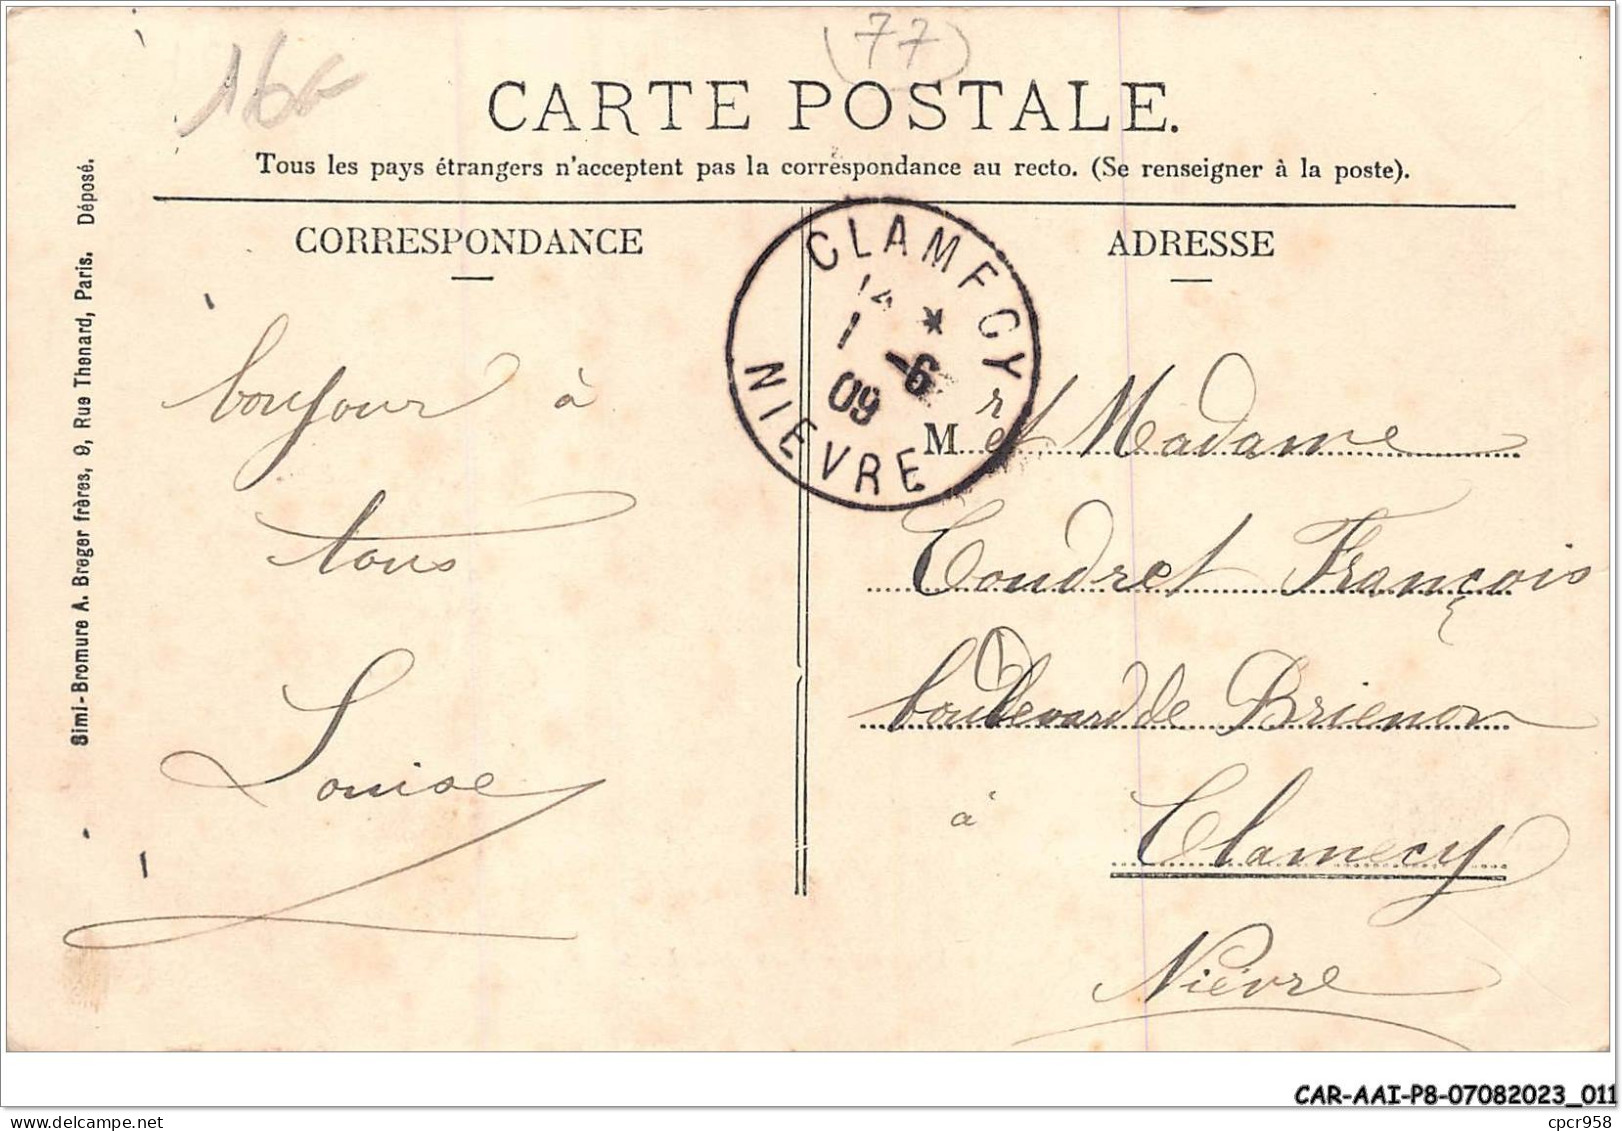 (77)
16F
CARTE POSTALE.
Tous les pays étrangers n'acceptent pas la correspondance au recto. (Se renseigner à la poste).
CORRESPONDANCE
ADRESSE
Simi-Bromure A. Breger frères, 9, Rue Thenard, Paris. Déposé.
CLAMECY
14 *
1 -6
09
NIEVRE
bonjour à
tous
Louise
Mr et Madame
Coudret François
boulevard de Brienon
à Clamecy
Nièvre
CAR-AAI-P8-07082023_011
cpcr958